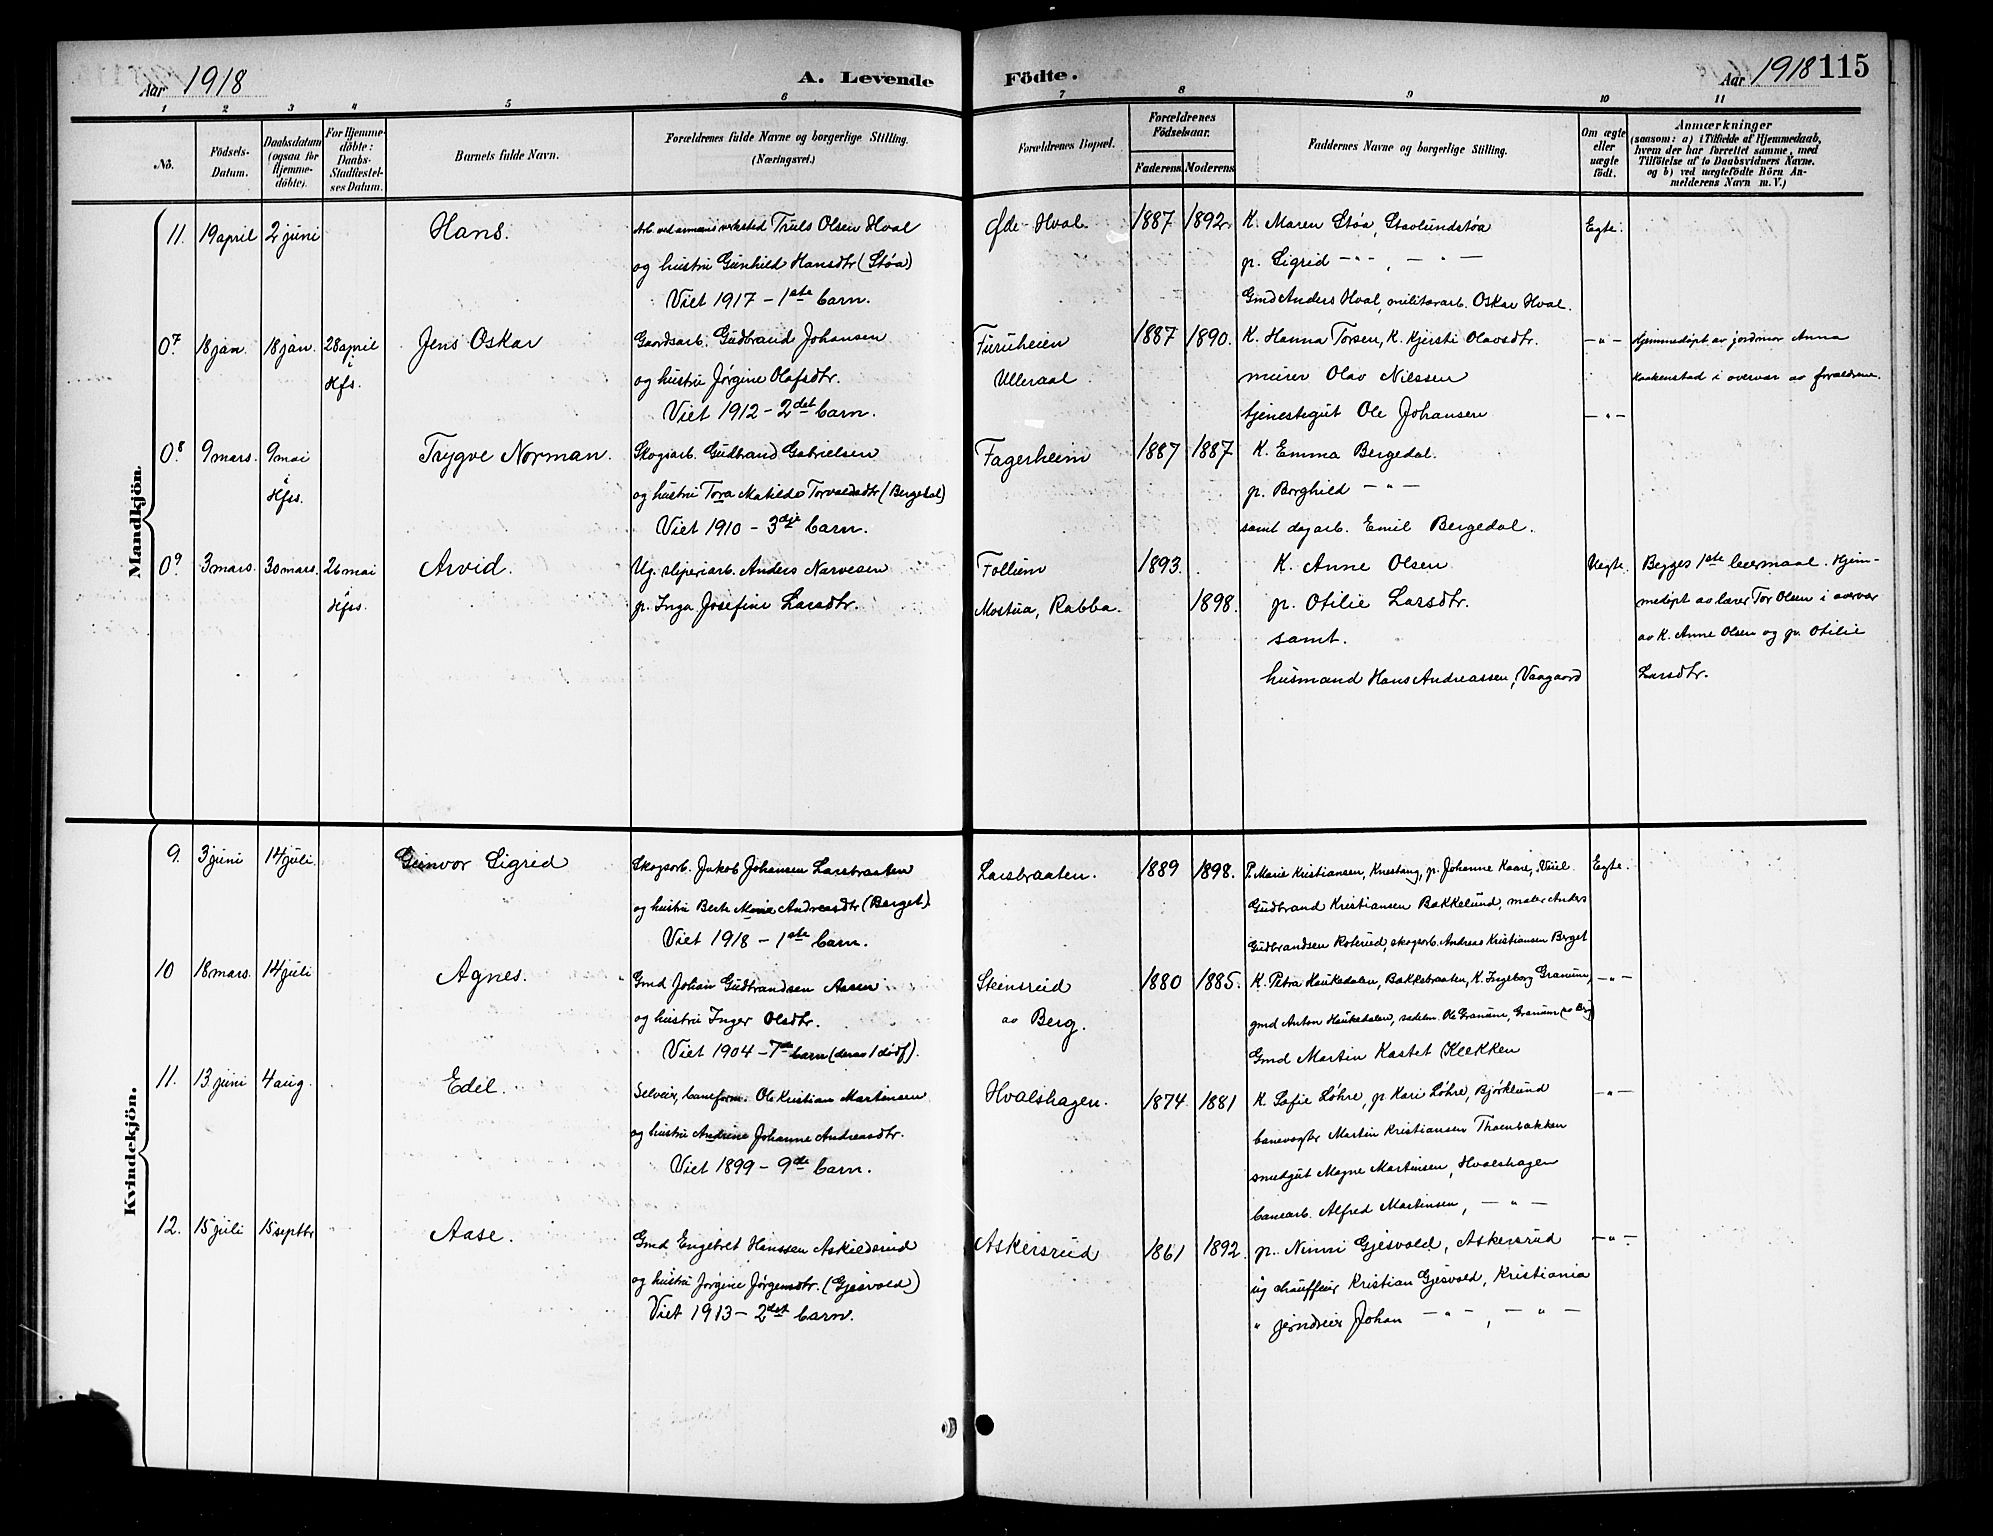 Aar 1918
A. Levende Födte.
Aar 1918 115
1 2 3 4 5 6 7 8 9 10 11
No.
Födsels-Datum.
Daabsdatum (ogsaa for Hjemme-döbte).
For Hjemme-döbte: Daabs-Stadfæstel-ses Datum.
Barnets fulde Navn.
Forældrenes fulde Navne og borgerlige Stilling.
(Næringsvei.)
Forældrenes Bopæl.
Forældrenes Födselsaar.
Faderens. Moderens.
Faddernes Navne og borgerlige Stilling.
Om ægte eller uægte födt.
Anmærkninger
(saasom: a) i Tilfælde af Hjemmedaab,
hvem der har forrettet samme, med
Tilföielse af to Daabsvidners Navne.
og b) ved uægtefödte Börn An-
melderens Navn m. V.)
Mandkjön.
11. 19 april 2 juni Hans. Arb. ved armens verksted Truls Olsen Hval Øde-Hval. 1887 1892. K. Maren Støa, Stavlundstøa Egte.
og hustru Gunhild Hansdtr (Støa) p. Sigrid — " — , — " —
Viet 1917 - 1ste barn. Gmd Anders Hval, militærarb. Oskar Hval.
07 18 jan. 18 jan. 28 april Jens Oskar Gaardsarb. Gudbrand Johansen Furuheien 1887 1890. K. Hanna Torsen, K. Kjersti Olavsdtr. — " — Hjemmedøpt av jordmor Anna
i Hfs. og hustru Jørgine Olafsdtr. Ulleraal murer Olav Nilssen Haakenstad i overvær av forældrene.
Viet 1912 - 2det barn. tjenestegut Ole Johansen — " —
08 9 mars. 9 mai Trygve Norman. Skogsarb. Gudbrand Gabrielsen Fagerheim 1887 1887 K. Emma Bergedal.
i Hfss. og hustru Tora Matilde Torvaldsdtr (Bergedal) p. Borghild — " —
Viet 1910 - 3dje barn. samt dagarb. Emil Bergedal.
09 3 mars. 30 mars. 26 mai Arvid. Ug. sliperiarb. Anders Narvesen Follum 1893. K. Anne Olsen Uegte. Begges 1ste leiermaal. Hjem-
i Hfss. p. Inga Josefine Larsdtr. Mostua, Rabba. 1898. p. Otilie Larsdtr. medøpt av lærer Tor Olsen i overvær
samt. av K. Anne Olsen og p. Otilie
husmand Hans Andreassen, Vaagaard Larsdtr.
Kvindekjön.
9. 3 juni 14 juli Gunvor Sigrid Skogsarb. Jakob Johansen Larsbraaten Larsbraaten. 1889 1898. P. Marie Kristiansen, Knestang, p. Johanne Kaare, Egte.
og hustru Berte Marie Andreasdtr (Berget) Gudbrand Kristiansen Bakkelund, maler Anders
Viet 1918 - 1ste barn. Gudbrandsen Roterud, skogsarb. Andreas Kristiansen Berget
10 18 mars. 14 juli Agnes. Gmd Johan Gudbrandsen Aasen Steinsrud 1880 1885. K. Petra Haukedalen, Bakkebraaten, K. Ingeborg Granum, — " —
og hustru Inger Olsdtr. av Berg. gmd Anton Haukedalen, sadelm. Ole Granum, Granum (av Berg)
Viet 1904 - 7de barn (derav 1 dødf). Gmd Martin Kastet Klekken
11. 13 juni 4 aug. Edel. Selveier, baneform. Ole Kristian Martinsen Hvalshagen. 1874 1881 K. Sofie Løhre, p. Kari Løhre, Bjørklund — " —
og hustru Andrine Johanne Andreasdtr. banevogter Martin Kristiansen Thoenbakken
Viet 1899 - 9de barn. smedgut Magne Martinsen, Hvalshagen
banearb. Alfred Martinsen, — " —
12. 15 juli 15 septbr Aase. Gmd Engebret Hanssen Askildsrud Askersrud 1861 1892. p. Ninni Gjesvold, Askersrud — " —
og hustru Jørgine Jørgensdtr. (Gjesvold) ug chauffeur Kristian Gjesvold, Kristiania
Viet 1913 - 2det barn. " jerndreier Johan — " — , — " —